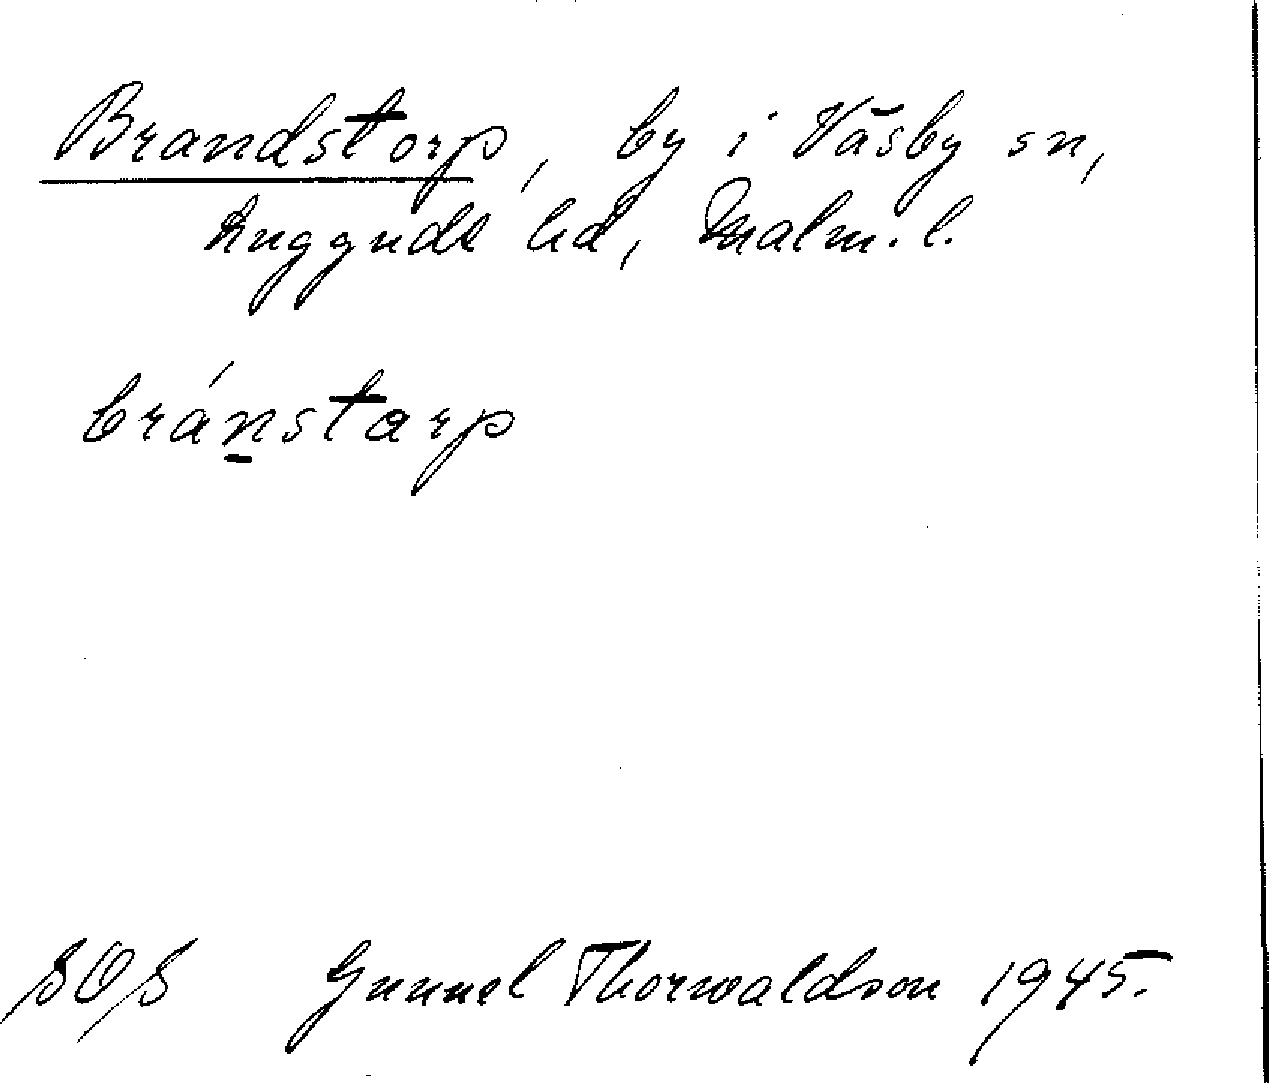 Brandstorp, by i Väsby sn,
Luggude hd, Malm. l.
bránstarp
SOS Gunnel Thorwaldson 1945.